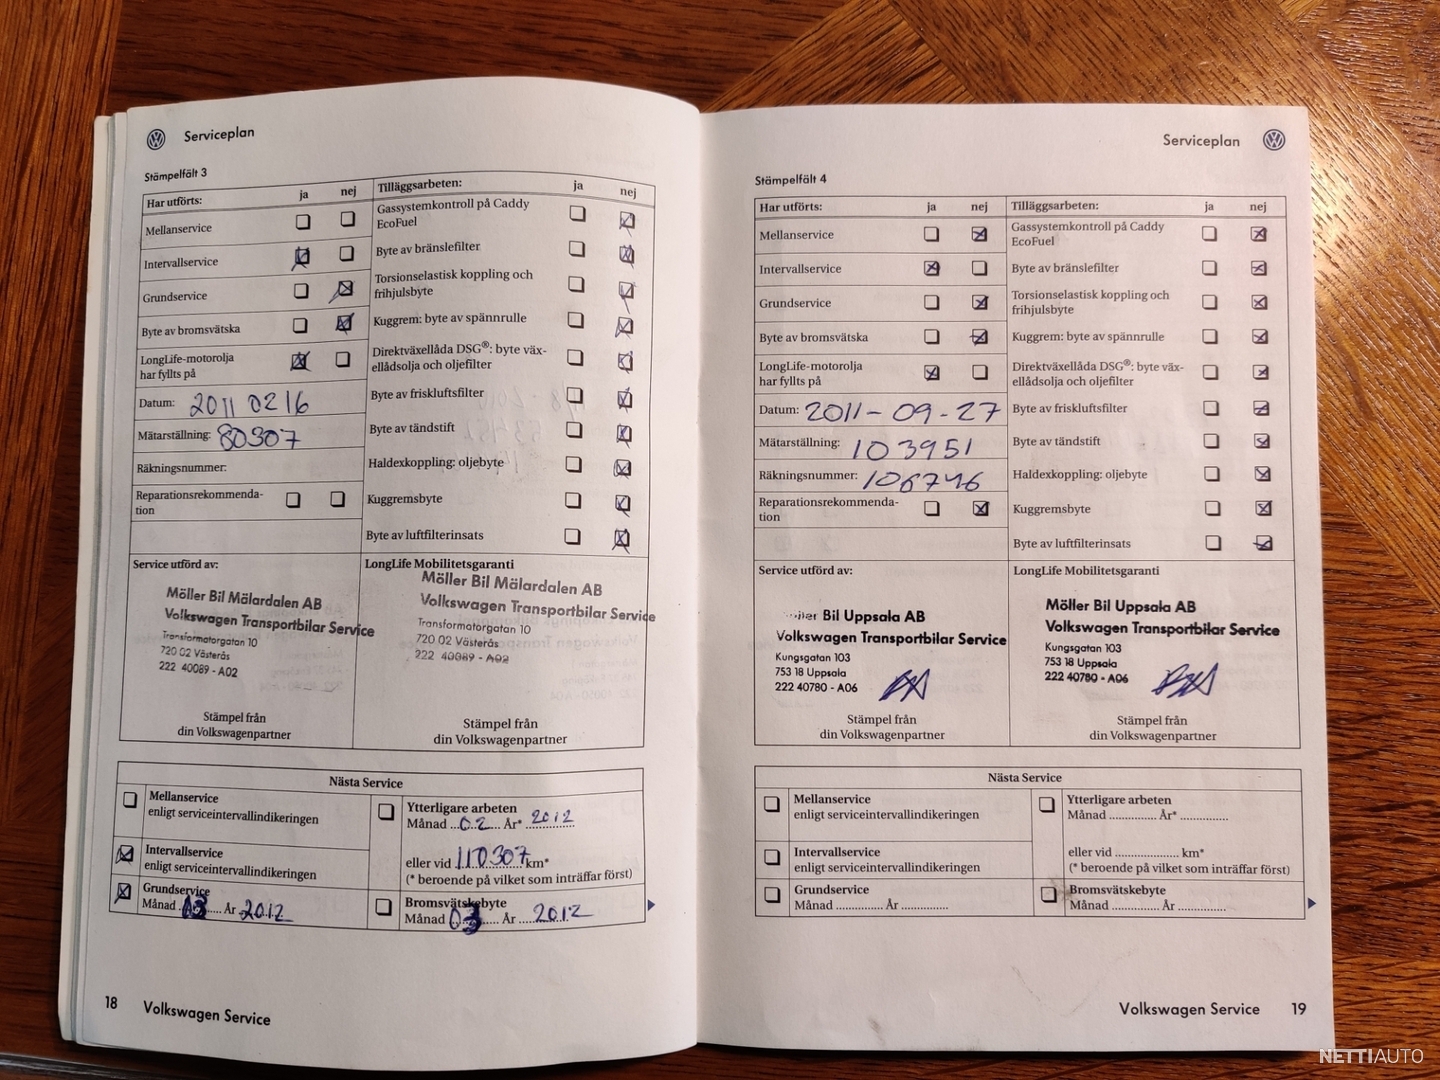 Serviceplan
Stämpelfält 3
Har utförts: ja nej
Mellanservice
Intervallservice
Grundservice
Byte av bromsvätska
LongLife-motorolja
har fyllts på
Datum: 2011 02 16
Mätarställning: 80307
Räkningsnummer:
Reparationsrekommenda-
tion
Tilläggsarbeten: ja nej
Gassystemkontroll på Caddy
EcoFuel
Byte av bränslefilter
Torsionselastisk koppling och
frihjulsbyte
Kuggrem: byte av spännrulle
Direktväxellåda DSG®: byte väx-
ellådsolja och oljefilter
Byte av friskluftsfilter
Byte av tändstift
Haldexkoppling: oljebyte
Kuggremsbyte
Byte av luftfilterinsats
Service utförd av:
Möller Bil Mälardalen AB
Volkswagen Transportbilar Service
Transformatorgatan 10
720 02 Västerås
222 40089 - A02
Stämpel från
din Volkswagenpartner
LongLife Mobilitetsgaranti
Möller Bil Mälardalen AB
Volkswagen Transportbilar Service
Transformatorgatan 10
720 02 Västerås
222 40089 - A02
Stämpel från
din Volkswagenpartner
Nästa Service
Mellanservice
enligt serviceintervallindikeringen
Intervallservice
enligt serviceintervallindikeringen
Grundservice
Månad 03 År 2012
Ytterligare arbeten
Månad 02 År* 2012
eller vid 110307 km*
(* beroende på vilket som inträffar först)
Bromsvätskebyte
Månad 03 År 2012
18 Volkswagen Service
Serviceplan
Stämpelfält 4
Har utförts: ja nej
Mellanservice
Intervallservice
Grundservice
Byte av bromsvätska
LongLife-motorolja
har fyllts på
Datum: 2011-09-27
Mätarställning: 103951
Räkningsnummer: 106746
Reparationsrekommenda-
tion
Tilläggsarbeten: ja nej
Gassystemkontroll på Caddy
EcoFuel
Byte av bränslefilter
Torsionselastisk koppling och
frihjulsbyte
Kuggrem: byte av spännrulle
Direktväxellåda DSG®: byte väx-
ellådsolja och oljefilter
Byte av friskluftsfilter
Byte av tändstift
Haldexkoppling: oljebyte
Kuggremsbyte
Byte av luftfilterinsats
Service utförd av:
Bil Uppsala AB
Volkswagen Transportbilar Service
Kungsgatan 103
753 18 Uppsala
222 40780 - A06
Stämpel från
din Volkswagenpartner
LongLife Mobilitetsgaranti
Möller Bil Uppsala AB
Volkswagen Transportbilar Service
Kungsgatan 103
753 18 Uppsala
222 40780 - A06
Stämpel från
din Volkswagenpartner
Nästa Service
Mellanservice
enligt serviceintervallindikeringen
Intervallservice
enligt serviceintervallindikeringen
Grundservice
Månad ............... År ...............
Ytterligare arbeten
Månad ............... År* ...............
eller vid .................... km*
(* beroende på vilket som inträffar först)
Bromsvätskebyte
Månad ............... År ...............
Volkswagen Service 19
NETTIAUTO